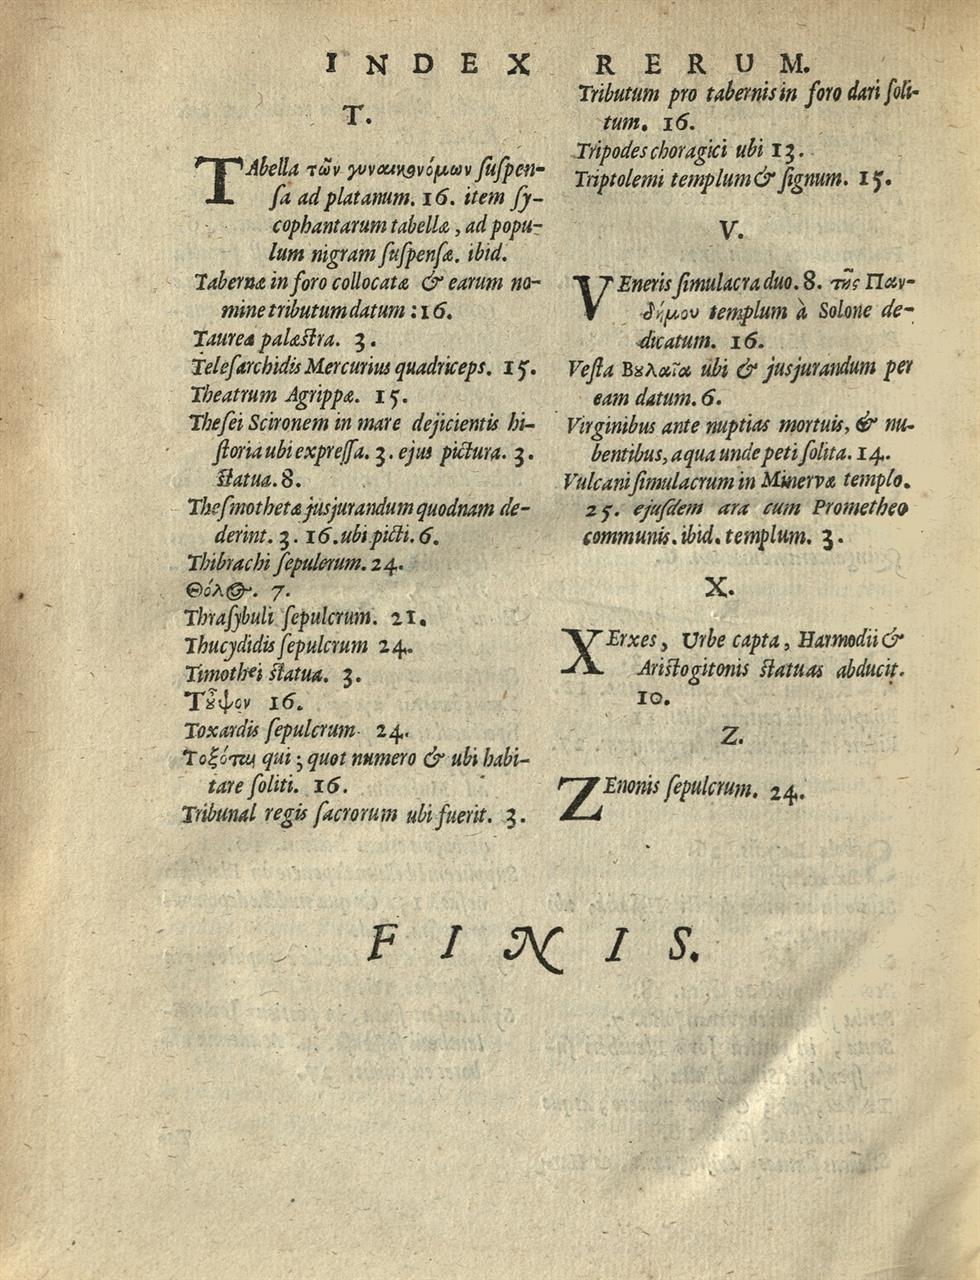 INDEX RERUM.
T.
TAbella τῶν γυναικονόμων ſuſpen-
ſa ad platanum. 16. item ſy-
cophantarum tabellæ, ad popu-
lum nigram ſuſpenſæ. ibid.
Tabernæ in foro collocatæ & earum no-
mine tributum datum : 16.
Taurea palæstra. 3.
Teleſarchidis Mercurius quadriceps. 15.
Theatrum Agrippæ. 15.
Theſei Scironem in mare dejicientis hi-
ſtoria ubi expreſſa. 3. ejus pictura. 3.
statua. 8.
Theſmothetæ jusjurandum quodnam de-
derint. 3. 16. ubi picti. 6.
Thibrachi ſepulerum. 24.
Θόλος. 7.
Thraſybuli ſepulcrum. 21.
Thucydidis ſepulcrum 24.
Timothei statua. 3.
Τȣ͂ψον 16.
Toxardis ſepulcrum 24.
Τοξόται qui ; quot numero & ubi habi-
tare ſoliti. 16.
Tribunal regis ſacrorum ubi fuerit. 3.
Tributum pro tabernis in foro dari ſoli-
tum. 16.
Tripodes choragici ubi 13.
Triptolemi templum & ſignum. 15.
V.
VEneris ſimulacra duo. 8. τῆς Παν-
δήμου templum à Solone de-
dicatum. 16.
Veſta Βȣλαῖα ubi & jusjurandum per
eam datum. 6.
Virginibus ante nuptias mortuis, & nu-
bentibus, aqua unde peti ſolita. 14.
Vulcani ſimulacrum in Minervæ templo.
25. ejuſdem ara cum Prometheo
communis. ibid. templum. 3.
X.
XErxes, Urbe capta, Harmodii &
Aristogitonis statuas abducit.
10.
Z.
ZEnonis ſepulcrum. 24.
FINIS.